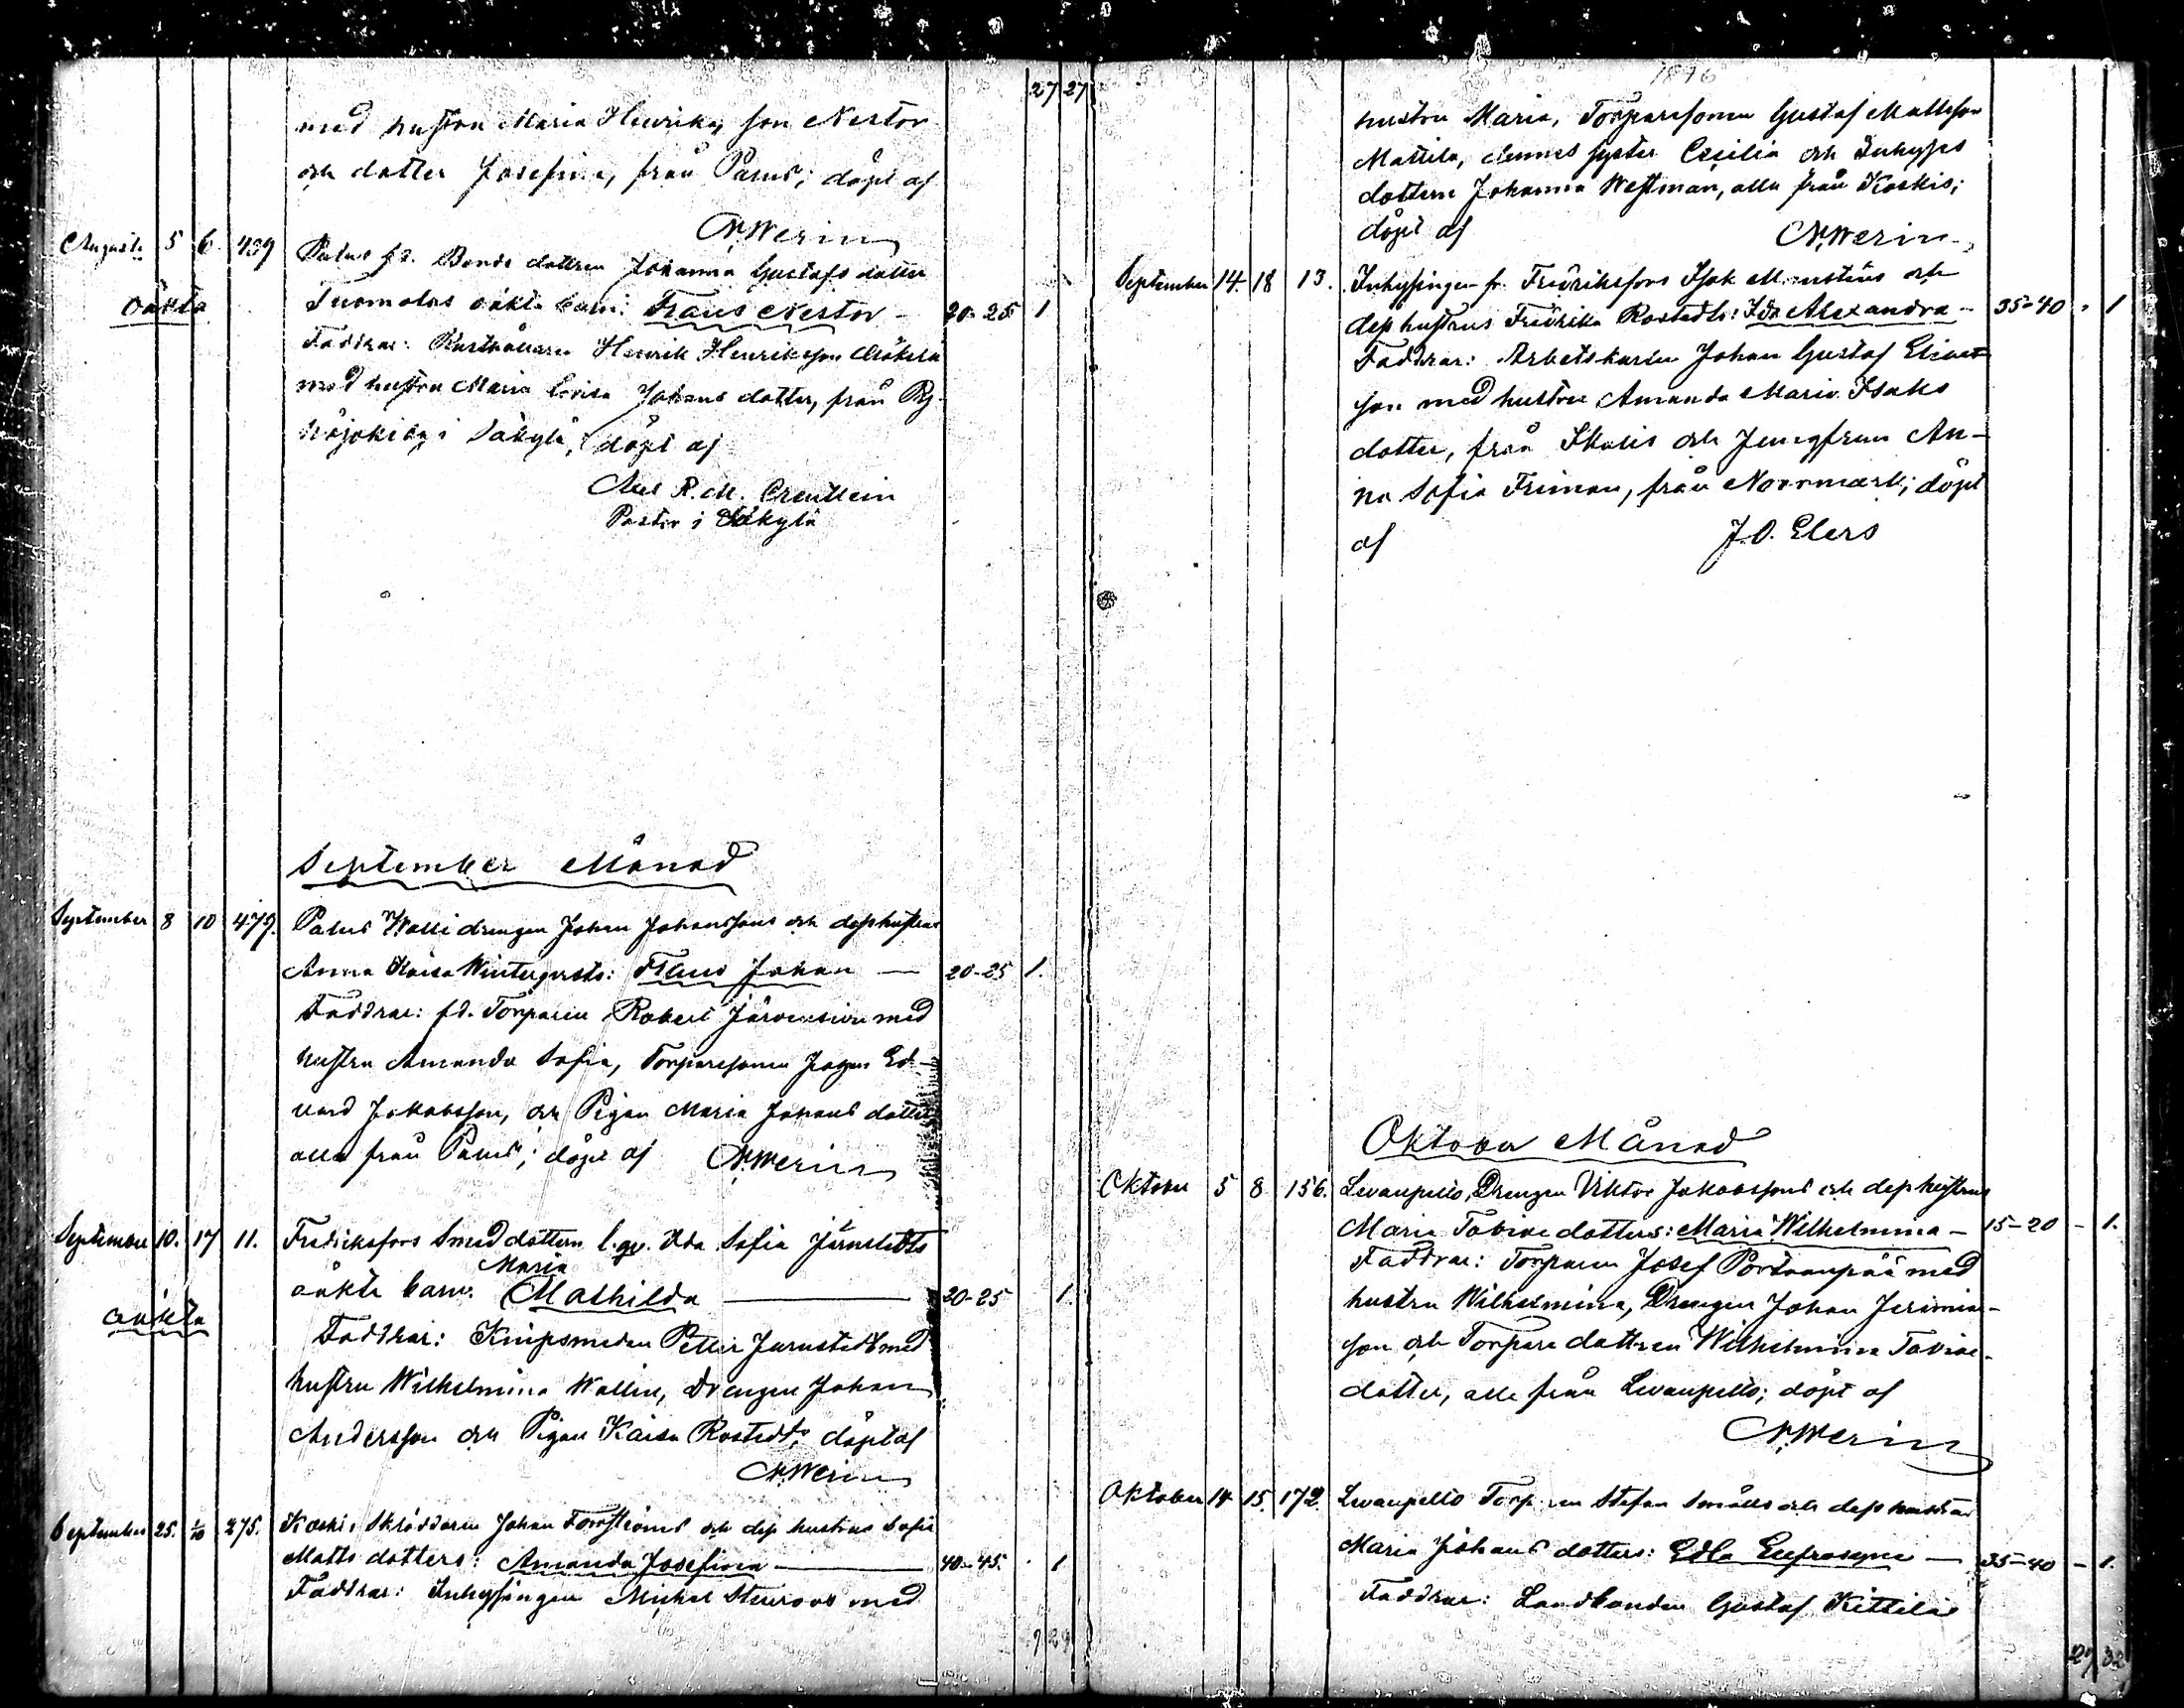 27 27
med hustru Maria Henrika, son Nestor
och dotter Josefina, från Pamus; döpt af
N. Werin
Augusti 5 6 439 Palus fd. Bonde dottren Johanna Gustafs dotter
oäkta Tuomolas oäkta barn: Frans Nestor - 20-25 1
Faddrar: Rusthållaren Henrik Henriksson Mäkelä
med hustru Maria Lovisa Johans dotter, från Py-
häjoki by i Säkylä, döpt af
Axel R. M.
Pastor i Säkylä
September Månad
September 8 10 479. Palus Walli drengen Johan Johanssons och dess hustrus
Anna Kaisa Wintergrsts: Frans Johan — 20-25 1.
Faddrar: fd. Torparen Robert Järvensivu med
hustru Amanda Sofia, Torparesonen Ed-
vard Jakobsson, och Pigan Maria Johans dotter
alla från Palus; döpt af N. Werin
September 10. 17 11. Fredriksfors Smed dottern l. qv. Ida Sofia Järnstedts
Maria
oäkta barn. Mathilda — 20-25 1
oäkta
Faddrar: Knipsmeden Petter Jernstedt med
hustru Wilhelmina Wallin, Drengen Johan
Andersson och Pigan Kaisa Rostedt; döpt af
N. Werin
September 25. 1/10 275. Koskis Skräddaren Johan Forsströms och dess hustrus Sofia
Matts dotters: Amanda Josefina — 40-45. 1
Faddrar: Inhysingen Michel Stenroos med
29
1896
hustru Maria, Torparesonen Gustaf Mattsson
Mattila, dennes syster Cecilia och Inhyses
dottern Johanna Westman, alla från Koskis;
döpt af N. Werin
September 14 18 13. Inhysingen fr. Fredriksfors Isak och
dess hustrus Fredrika Rostedts: Ida Alexandra - 35-40 - 1
Faddrar: Arbetskarlen Johan Gustaf
son med hustru Amanda Maria Isaks
dotter, från och Jungfrun An-
na Sofia Friman, från Norrmark; döpt
af J. O. Elers
Oktober Månad
Oktober 5 8 156. Levanpelto, Drengen Viktor Jakobssons och dess hustrus
Maria Tobiae dotters: Maria Wilhelmina - 15-20 - 1.
Faddrar: Torparen Josef Portaanpää med
hustru Wilhelmina, Drengen Johan Jeremias-
son och Torpare dottren Wilhelmina Tobiae-
dotter, alla från Levanpelto; döpt af
N. Werin
Oktober 14 15. 172. Levanpelto Torparen Stefan Smålls och dess hustrus
Maria Johans dotters: Edla Eufrosyne — 35-40 - 1.
Faddrar: Landbonden Gustaf Kittilä
29 32